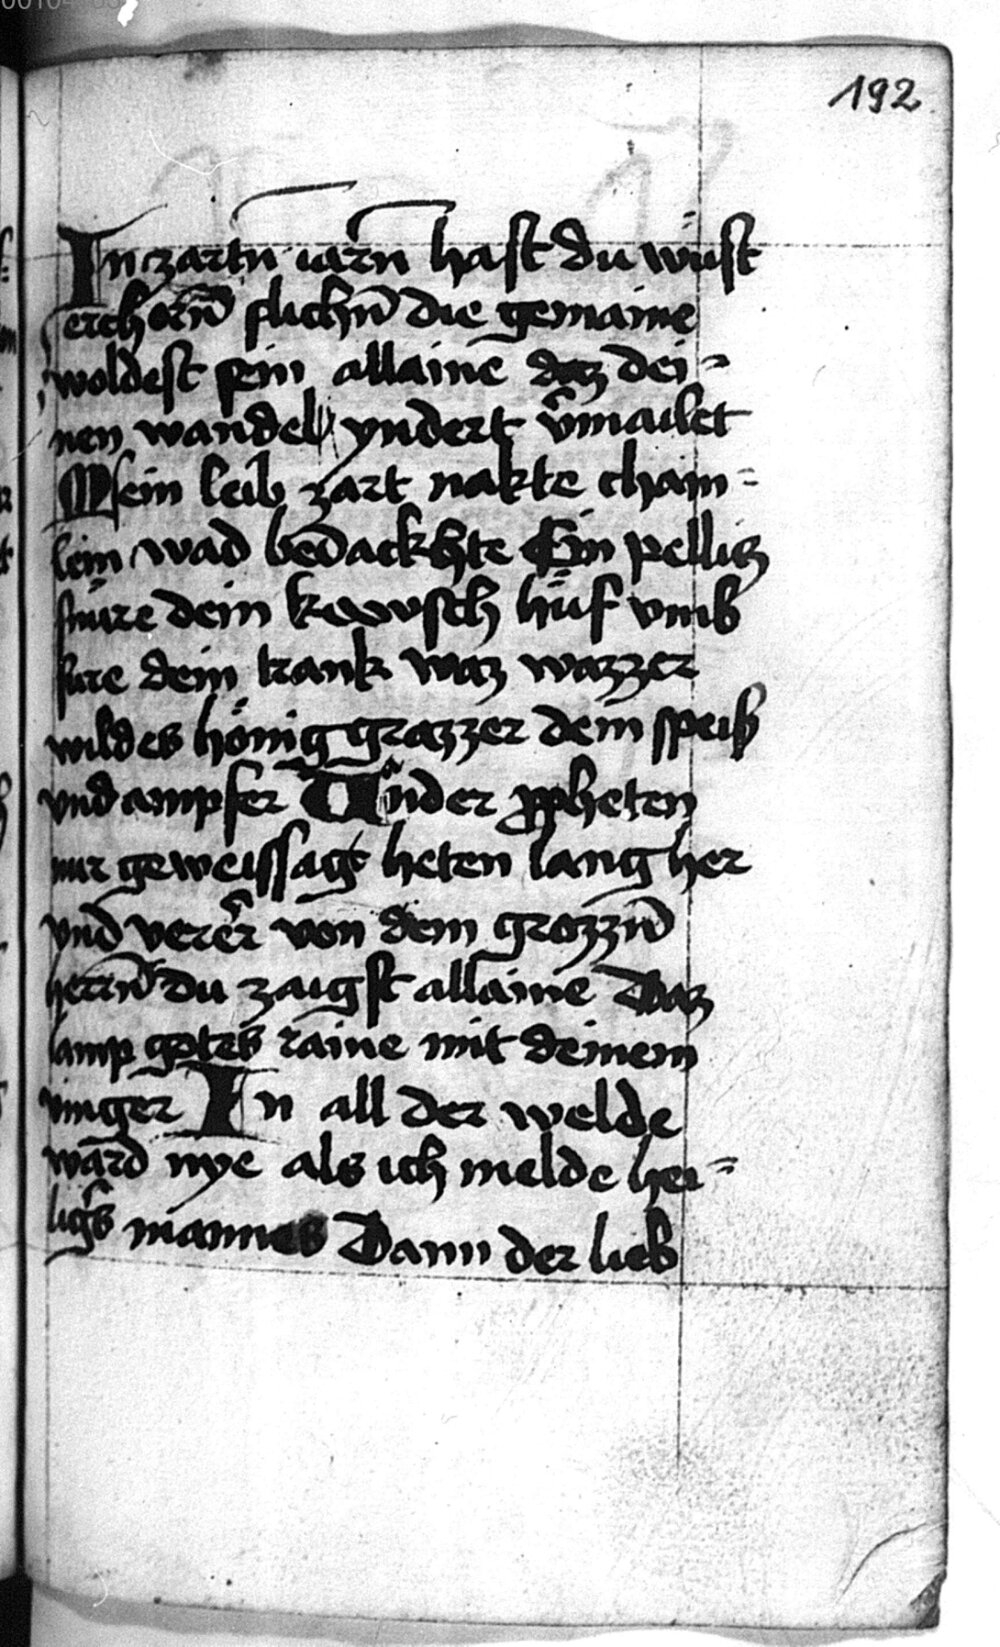 192
In zartn iarn hast du wüst
erchorn̄ flichn̄ die gemaine
woldest sein allaine daz dei=
nen wandel yndert v̄mailet
Dein leib zart nakte cham=
lein wad bedackhte Ein pelliz
snüre dein kewsch hüf vmb
fure dein trank waz wazzer
wildes hönig grazzer dein speis
vnd ampfer Ander ꝓpheten
nur geweissagt heten lang her
vnd verer̄ von dem grozzn̄
herrn̄ du zaigst allaine Daz
lamp gotes raine mit deinem
vinger In all der welde
ward nye als ich melde hei=
ligs mannes Dann der lieb